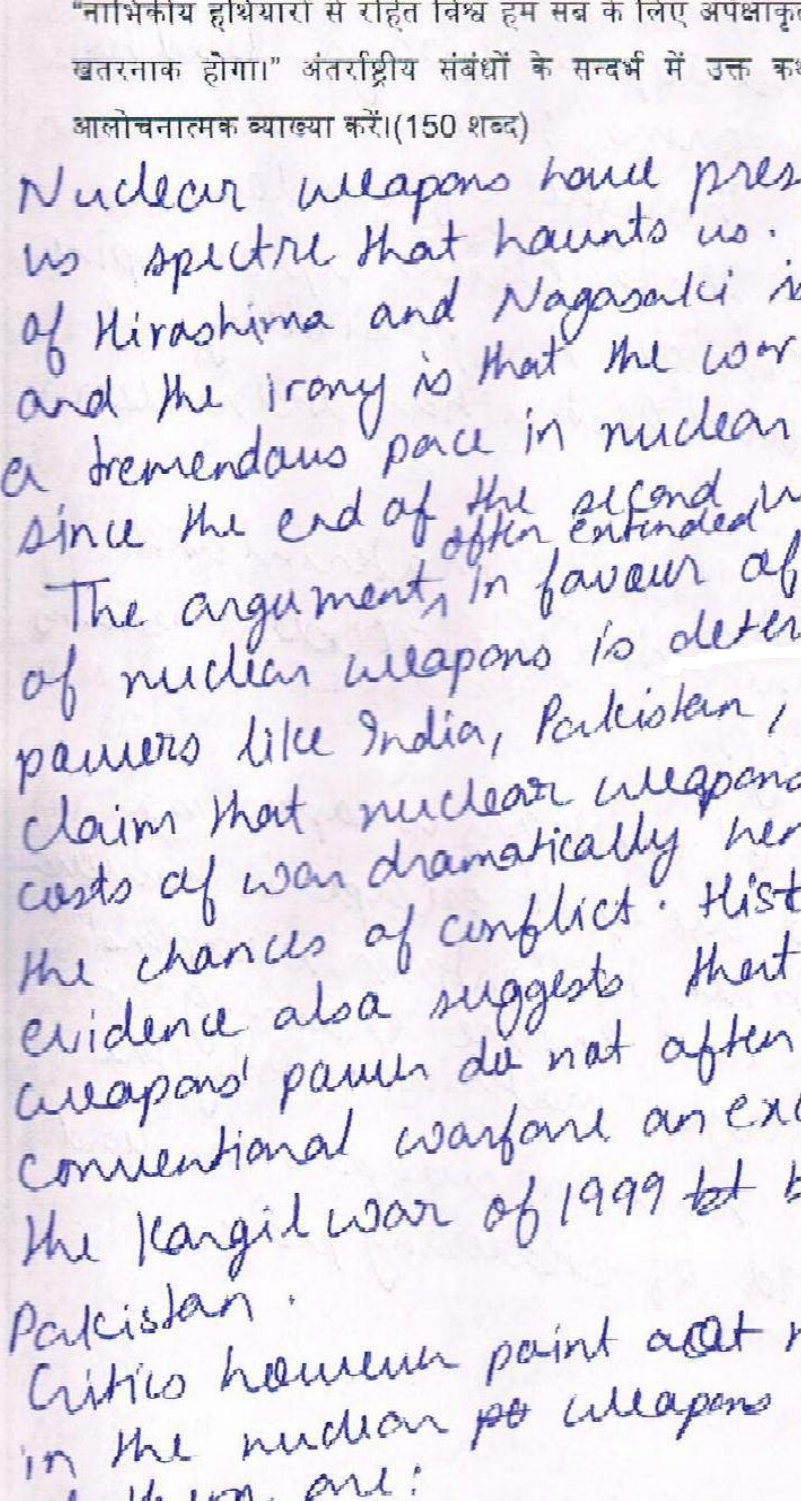 "नाभिकीय हथियारों से रहित विश्व हम सब के लिए अपेक्षाकृत
खतरनाक होगा।" अंतर्राष्ट्रीय संबंधों के सन्दर्भ में उक्त कथ
आलोचनात्मक व्याख्या करें।(150 शब्द)
Nuclear weapons have pres
us spectre that haunts us.
of Hiroshima and Nagasaki is
and the irony is that the wor
a tremendous pace in nuclear
since the end of the second w
often extended
The argument, in favour of
of nuclear weapons is deter
powers like India, Pakistan,
claim that nuclear weapons
costs of war dramatically hen
the chances of conflict. Hist
evidence also suggests that
weapons' power do not often
conventional warfare an exc
the Kargil war of 1999 bt b
Pakistan.
Critics however point out
in the nuclear weapons
are: